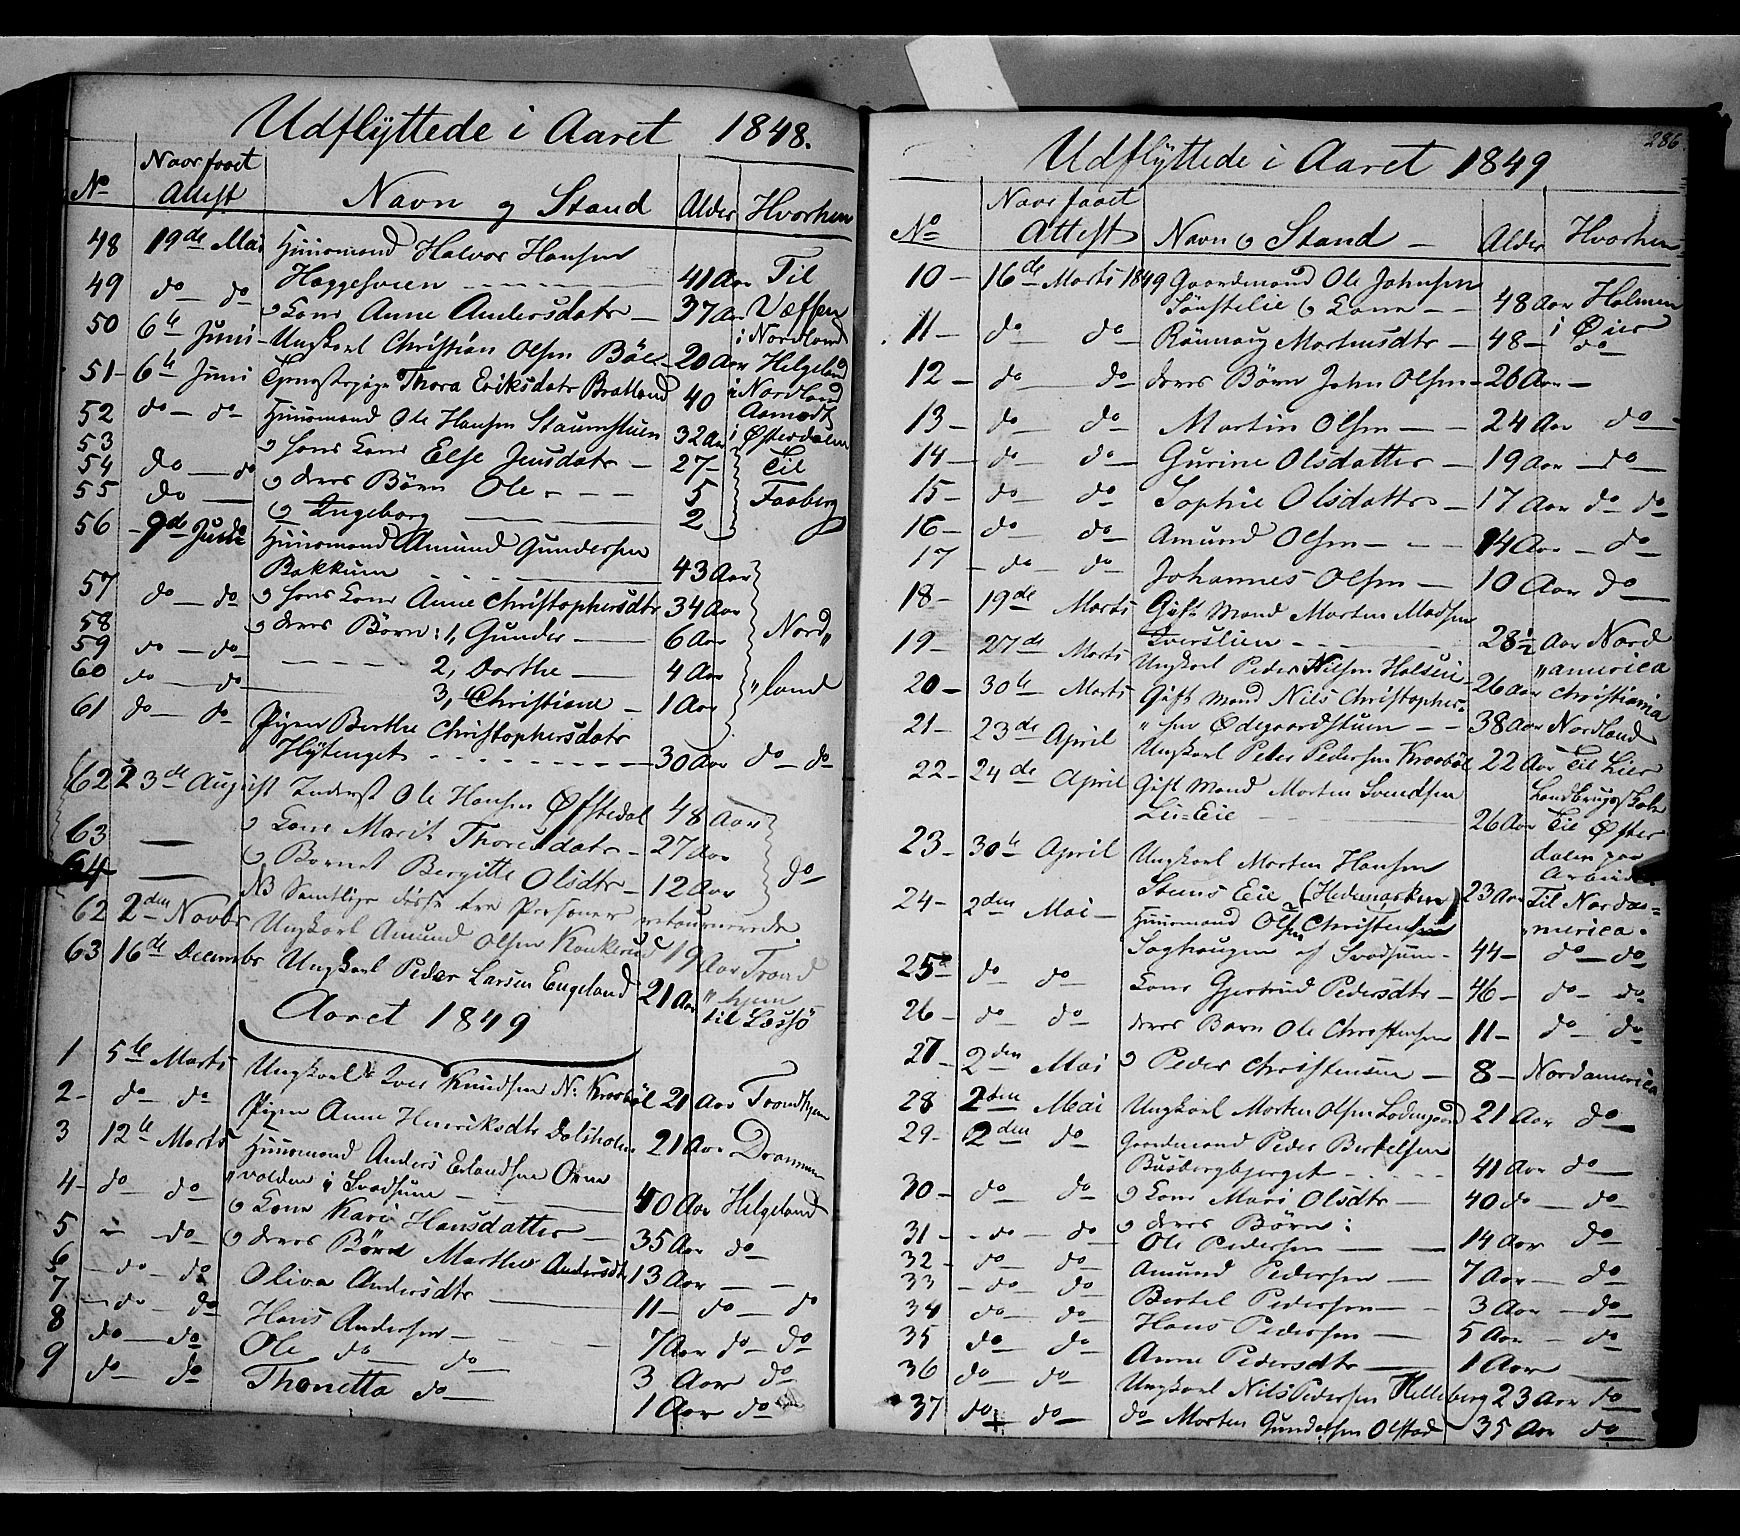 Udflyttede i Aaret 1848.
No Naar faaet Attest Navn og Stand Alder Hvorhen
48 19de Mai Huusmand Halvor Hansen
Haggesveen 41 Aar Til
49 do do og Kone Anne Andersdatr 37 Aar Væffen
50 6te Juni Ungkarl Christian Olsen Böe 20 Aar i Nordland Helgeland
51 6te Juni Tjenestepige Thora Eriksdatr Bratland 40 i Nordland Aamodt
52 do do Huusmand Ole Hansen Staumstuen 32 Aar i Østerdalen
53 og hans Kone Else Jensdatr 27 Til
54 do do og deres Børn Ole 5 Faaberg
55 do og Ingeborg 2
56 9de Huusmand Amund Gundersen
Bakkum 43 Aar
57 do do og hans Kone Anne Christophersdtr 34 Aar
58 og deres Børn: 1, Gunder 6 Aar Nord„
59 do do 2, Dorthe 4 Aar
60 do do 3, Christiane 1 Aar „land
61 do do Pigen Berthe Christophersdatr
Høytenget 30 Aar do do
62 23de August Inderst Ole Hansen Øfstedal 48 Aar
63 og Kone Marit Thoresdatr 27 Aar
64 og Barnet Bergitte Olsdtr 12 Aar do
NB Samtlige disse tre Personer retournerede.
62 2den Novbr Ungkarl Amund Olsen Kankerud 19 Aar Trond
63 16de Decembr Ungkarl Peder Larsen Engeland 21 Aar „hjem til Lessø
Aaret 1849
1 5te Marts Ungkarl Iver Knudsen N: Kraabøl 21 Aar Trondhjem
2 do do Pigen Anne Henriksdtr Dalsholen 21 Aar Drammen
3 12te Marts Huusmand Anders Erlandsen Orne
„volden i Svadsum 40 Aar Helgeland
4 do do og Kone Kari Hansdatter 35 Aar do
5 do og deres Børn Marthe Andersdtr 13 Aar
6 do do Oliva Andersdtr 11 do do
7 do do Hans Andersen 7 Aar do do
8 do do Ole do do 3 Aar do
9 do do Thonetta do 1 Aar do
286.
Udflyttede i Aaret 1849
No Naar faaet Attest Navn og Stand Alder Hvorhen
10 16de Marts 1849 Gaardmand Ole Johnsen
Sönstelie og Kone 48 Aar Holmen
11 do do Rönnaug Morthensdtr 48 i Øier do
12 do do deres Børn John Olsen 26 Aar
13 do do Martin Olsen 24 Aar do
14 do do Gurine Olsdatter 19 Aar do
15 do do Sophie Olsdattr 17 Aar do do
16 do do Amund Olsen 14 Aar do
17 do do Johannes Olsen 10 Aar do
18 19de Marts Gift Mand Morten Madsen
Iverslien 28½ Aar Nord
19 27de Marts Ungkarl Peder Nilsen Holsen 26 Aar „america Christiania
20 30te Marts Gift Mand Nils Christopher-
„sen Ødegaardstuen 38 Aar Nordland
21 23de April Ungkarl Peder Pedersen Kraabøl 22 Aar Til Lier
22 24de April Gift Mand Morten Svendsen Landbrugsskole
Lie-Eie 26 Aar Til Øster
23 30te April Ungkarl Morten Hansen dalen paa Arbeide.
Steens Eie (Hedemarken) 23 Aar Til Norda=
24 2den Mai Huusmand Olsen Christensen „merica.
Soghaugen af Svadsum 44 do do
25 do do Kone Gjertrud Pedersdtr 46 do do
26 do do deres Barn Ole Christensen 11 do do
27 2den Mai og Peder Christensen 8 Nordamerica
28 2den Mai Ungkarl Morten Olsen Lodengaard 21 Aar do
29 2den do Gaardmand Peder Bertelsen
Busbergbjerget 41 Aar do
30 do do og Kone Mari Olsdtr 40 do do
31 do do og deres Børn:
Ole Pedersen 14 Aar do
32 do do Amund Pedersen 7 Aar do
33 do do Bertel Pedersen 3 Aar do
34 do do Hans Pedersen 5 Aar do
35 do do Anne Pedersdtr 1 Aar
36 do do Ungkarl Nils Pedersen Helleberg 23 Aar do
37 do do do Morten Gundersen Olstad 35 Aar do